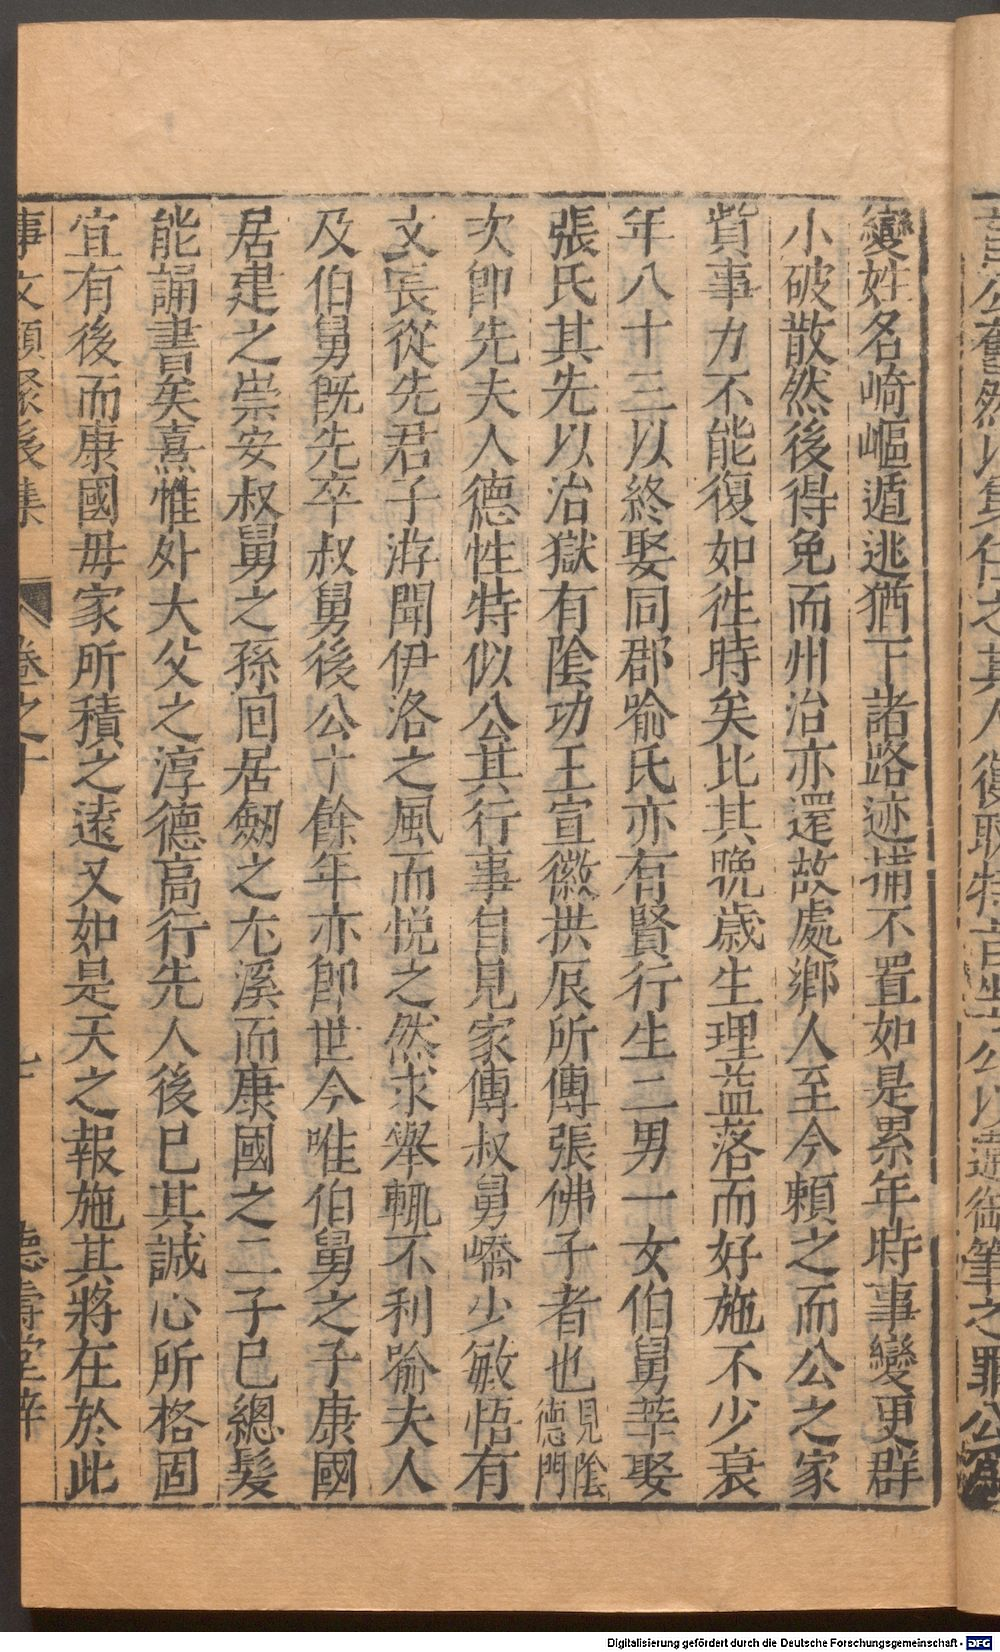 變姓名崎嶇遁逃猶下諸路迹捕不置如是累年時事變更群
小破散然後得免而州治亦還故處鄉人至今賴之而公之家
貲事力不能復如徃時矣比其晩歲生理益落而好施不少衰
年八十三以終娶同郡喻氏亦有賢行生二男一女伯舅莘娶
張氏其先以治獄有隂功王宣徽拱辰所傳張佛子者也見隂德門
次卽先夫人德性特似公其行事自見家傳叔舅嶠少敏悟有
文長從先君子游聞伊洛之風而悅之然求舉輒不利喻夫人
及伯舅旣先卒叔舅後公十餘年亦卽世今唯伯舅之子康國
居建之崇安叔舅之孫囘居劒之尢溪而康國之二子已總髮
能誦書矣熹惟外大父之淳德高行先人後已其誠心所格固
宜有後而康國毋家所積之遠又如是天之報施其將在於此
事文類聚後集 卷之十 七 德壽堂梓
Digitalisierung gefördert durch die Deutsche Forschungsgemeinschaft - DFG